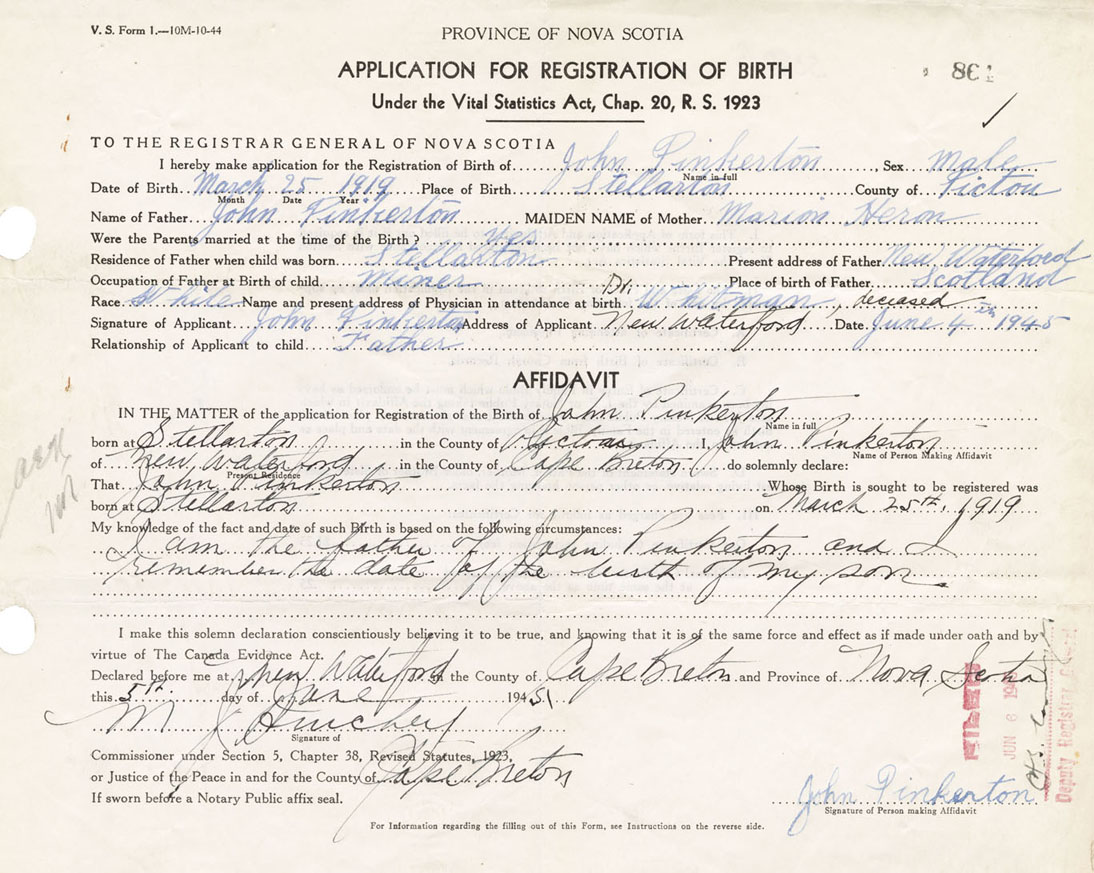 V. S. Form 1.—10M-10-44
PROVINCE OF NOVA SCOTIA
APPLICATION FOR REGISTRATION OF BIRTH
Under the Vital Statistics Act, Chap. 20, R. S. 1923
TO THE REGISTRAR GENERAL OF NOVA SCOTIA
I hereby make application for the Registration of Birth of John Pinkerton, Sex male
Name in full
Date of Birth March 25 1919 Place of Birth Stellarton County of Pictou
Month Date Year
Name of Father John Pinkerton MAIDEN NAME of Mother Marion Heron
Were the Parents married at the time of the Birth? yes
Residence of Father when child was born Stellarton Present address of Father New Waterford
Occupation of Father at Birth of child Miner Place of birth of Father Scotland
Race White Name and present address of Physician in attendance at birth Dr. Whitman, deceased
Signature of Applicant John Pinkerton Address of Applicant New Waterford Date June 4th 1945
Relationship of Applicant to child Father
AFFIDAVIT
IN THE MATTER of the application for Registration of the Birth of John Pinkerton
Name in full
born at Stellarton in the County of Pictou I, John Pinkerton
Name of Person Making Affidavit
of New Waterford in the County of Cape Breton do solemnly declare:
Present Residence
That John Pinkerton Whose Birth is sought to be registered was
born at Stellarton on March 25th, 1919
My knowledge of the fact and date of such Birth is based on the following circumstances:
I am the father of John Pinkerton and I
remember the date of the birth of my son.
I make this solemn declaration conscientiously believing it to be true, and knowing that it is of the same force and effect as if made under oath and by
virtue of The Canada Evidence Act.
Declared before me at New Waterford in the County of Cape Breton and Province of Nova Scotia
this 5th. day of June 1945
M J Hinchey
Signature of
Commissioner under Section 5, Chapter 38, Revised Statutes, 1923,
or Justice of the Peace in and for the County of Cape Breton
If sworn before a Notary Public affix seal.
John Pinkerton
Signature of Person making Affidavit
For Information regarding the filling out of this Form, see Instructions on the reverse side.
FILED
JUN 6
Deputy Registrar